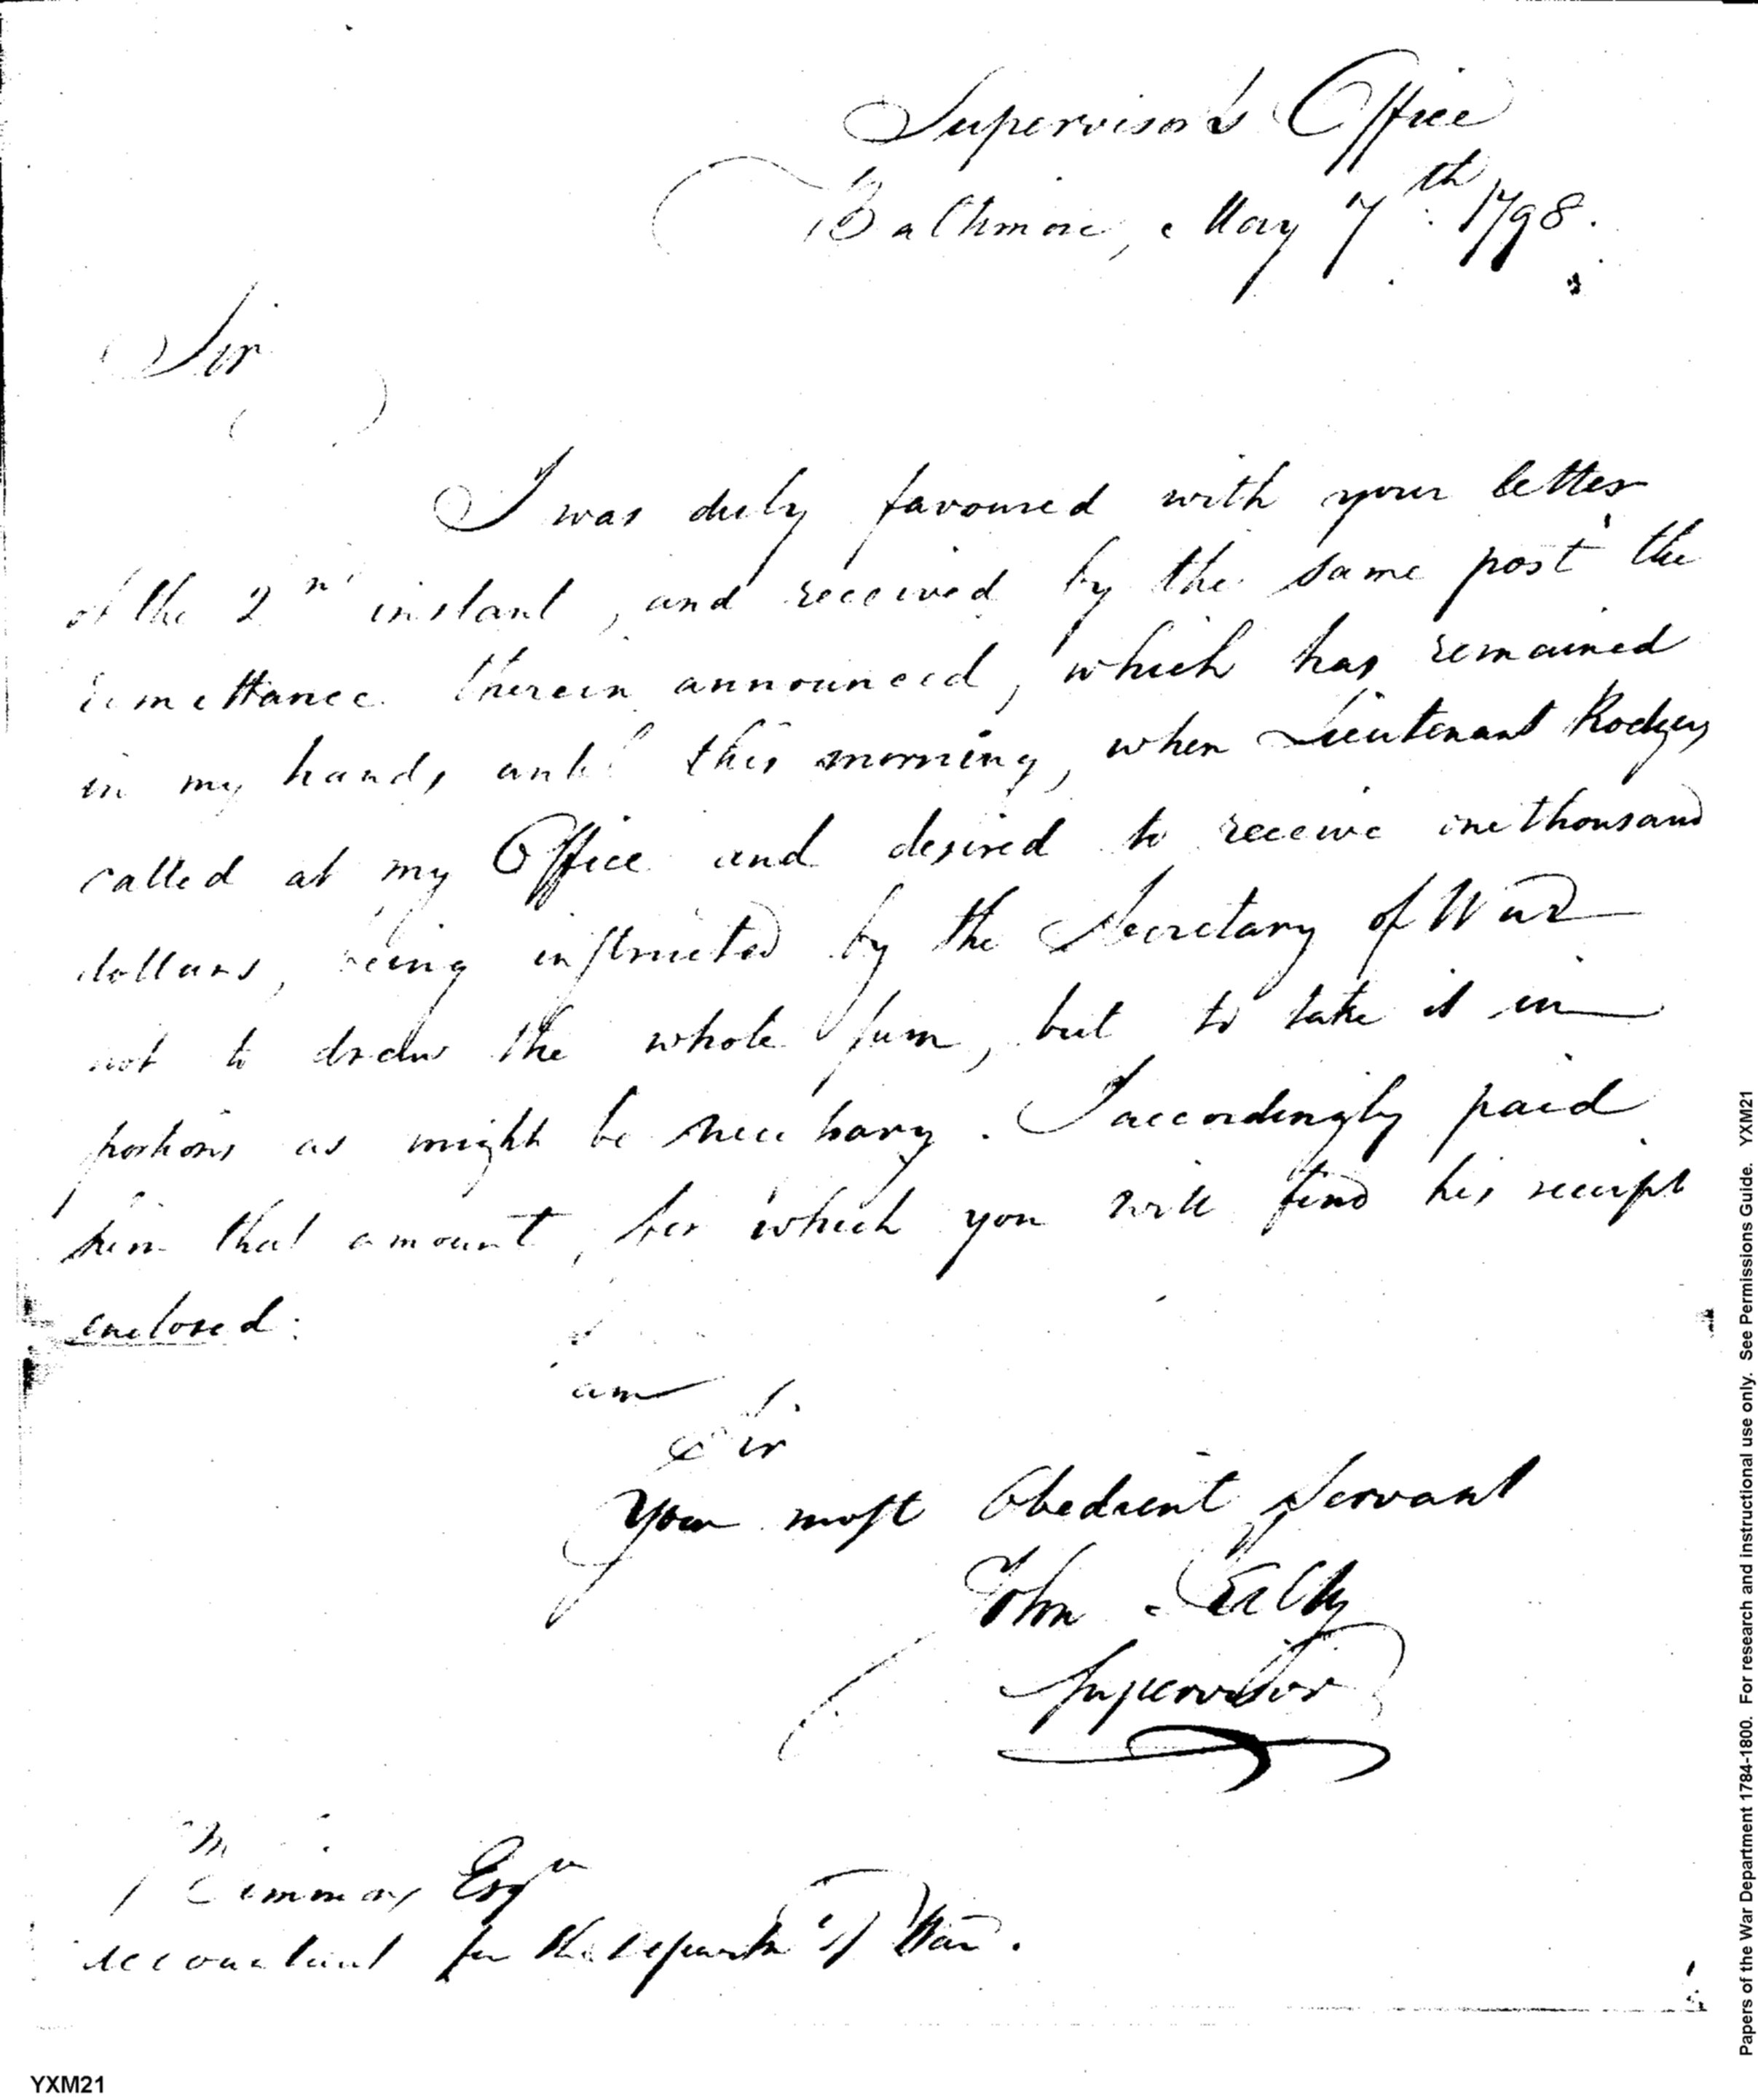 Supervisor's Office
Baltimore, May 7th. 1798.
Sir
I was duly favoured with your letter
of the 2nd instant, and received by the same post the
remittance therein announced, which has remained
in my hands until this morning, when Lieutenant Rodgers
called at my Office and desired to receive one thousand
dollars, being instructed by the Secretary of War
not to draw the whole sum, but to take it in
portions as might be necessary. I accordingly paid
him that amount, for which you will find his receipt
enclosed.
I
am
Sir
Your most Obedient Servant
John Kelty
Supervisor
Wm
Simmons Esqr
Accountant for the Departm of War.
YXM21
Papers of the War Department 1784-1800. For research and instructional use only. See Permissions Guide. YXM21